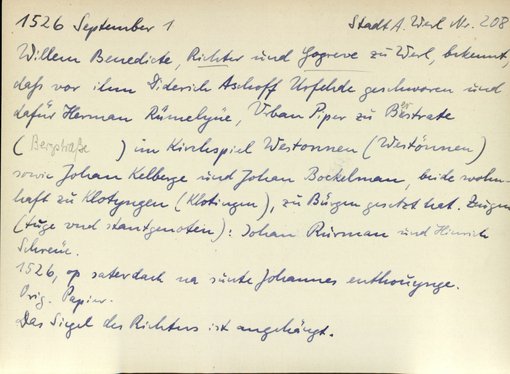 1526 September 1 Stadt A. Werl Nr. 208
Willem Benedicte, Richter und Gogreve zu Werl, bekennt,
daß vor ihm Diderich Asshoff Urfehde geschworen und
dafür Herman Rümelyne, Urban Piper zu Berstrate
(Bergstraße) im Kirchspiel Westonnen (Westönnen)
sowie Johan Kelberge und Johan Bockelman, beide wohn-
haft zu Klotyngen (Klotingen), zu Bürgen gesetzt hat. Zeugen
(tuge vnd stantgenoten): Johan Rurman und Hinrich
Schreue.
1526, op saterdach na sunte Johannes enthouynge.
Orig. Papier.
Das Siegel des Richters ist angehängt.